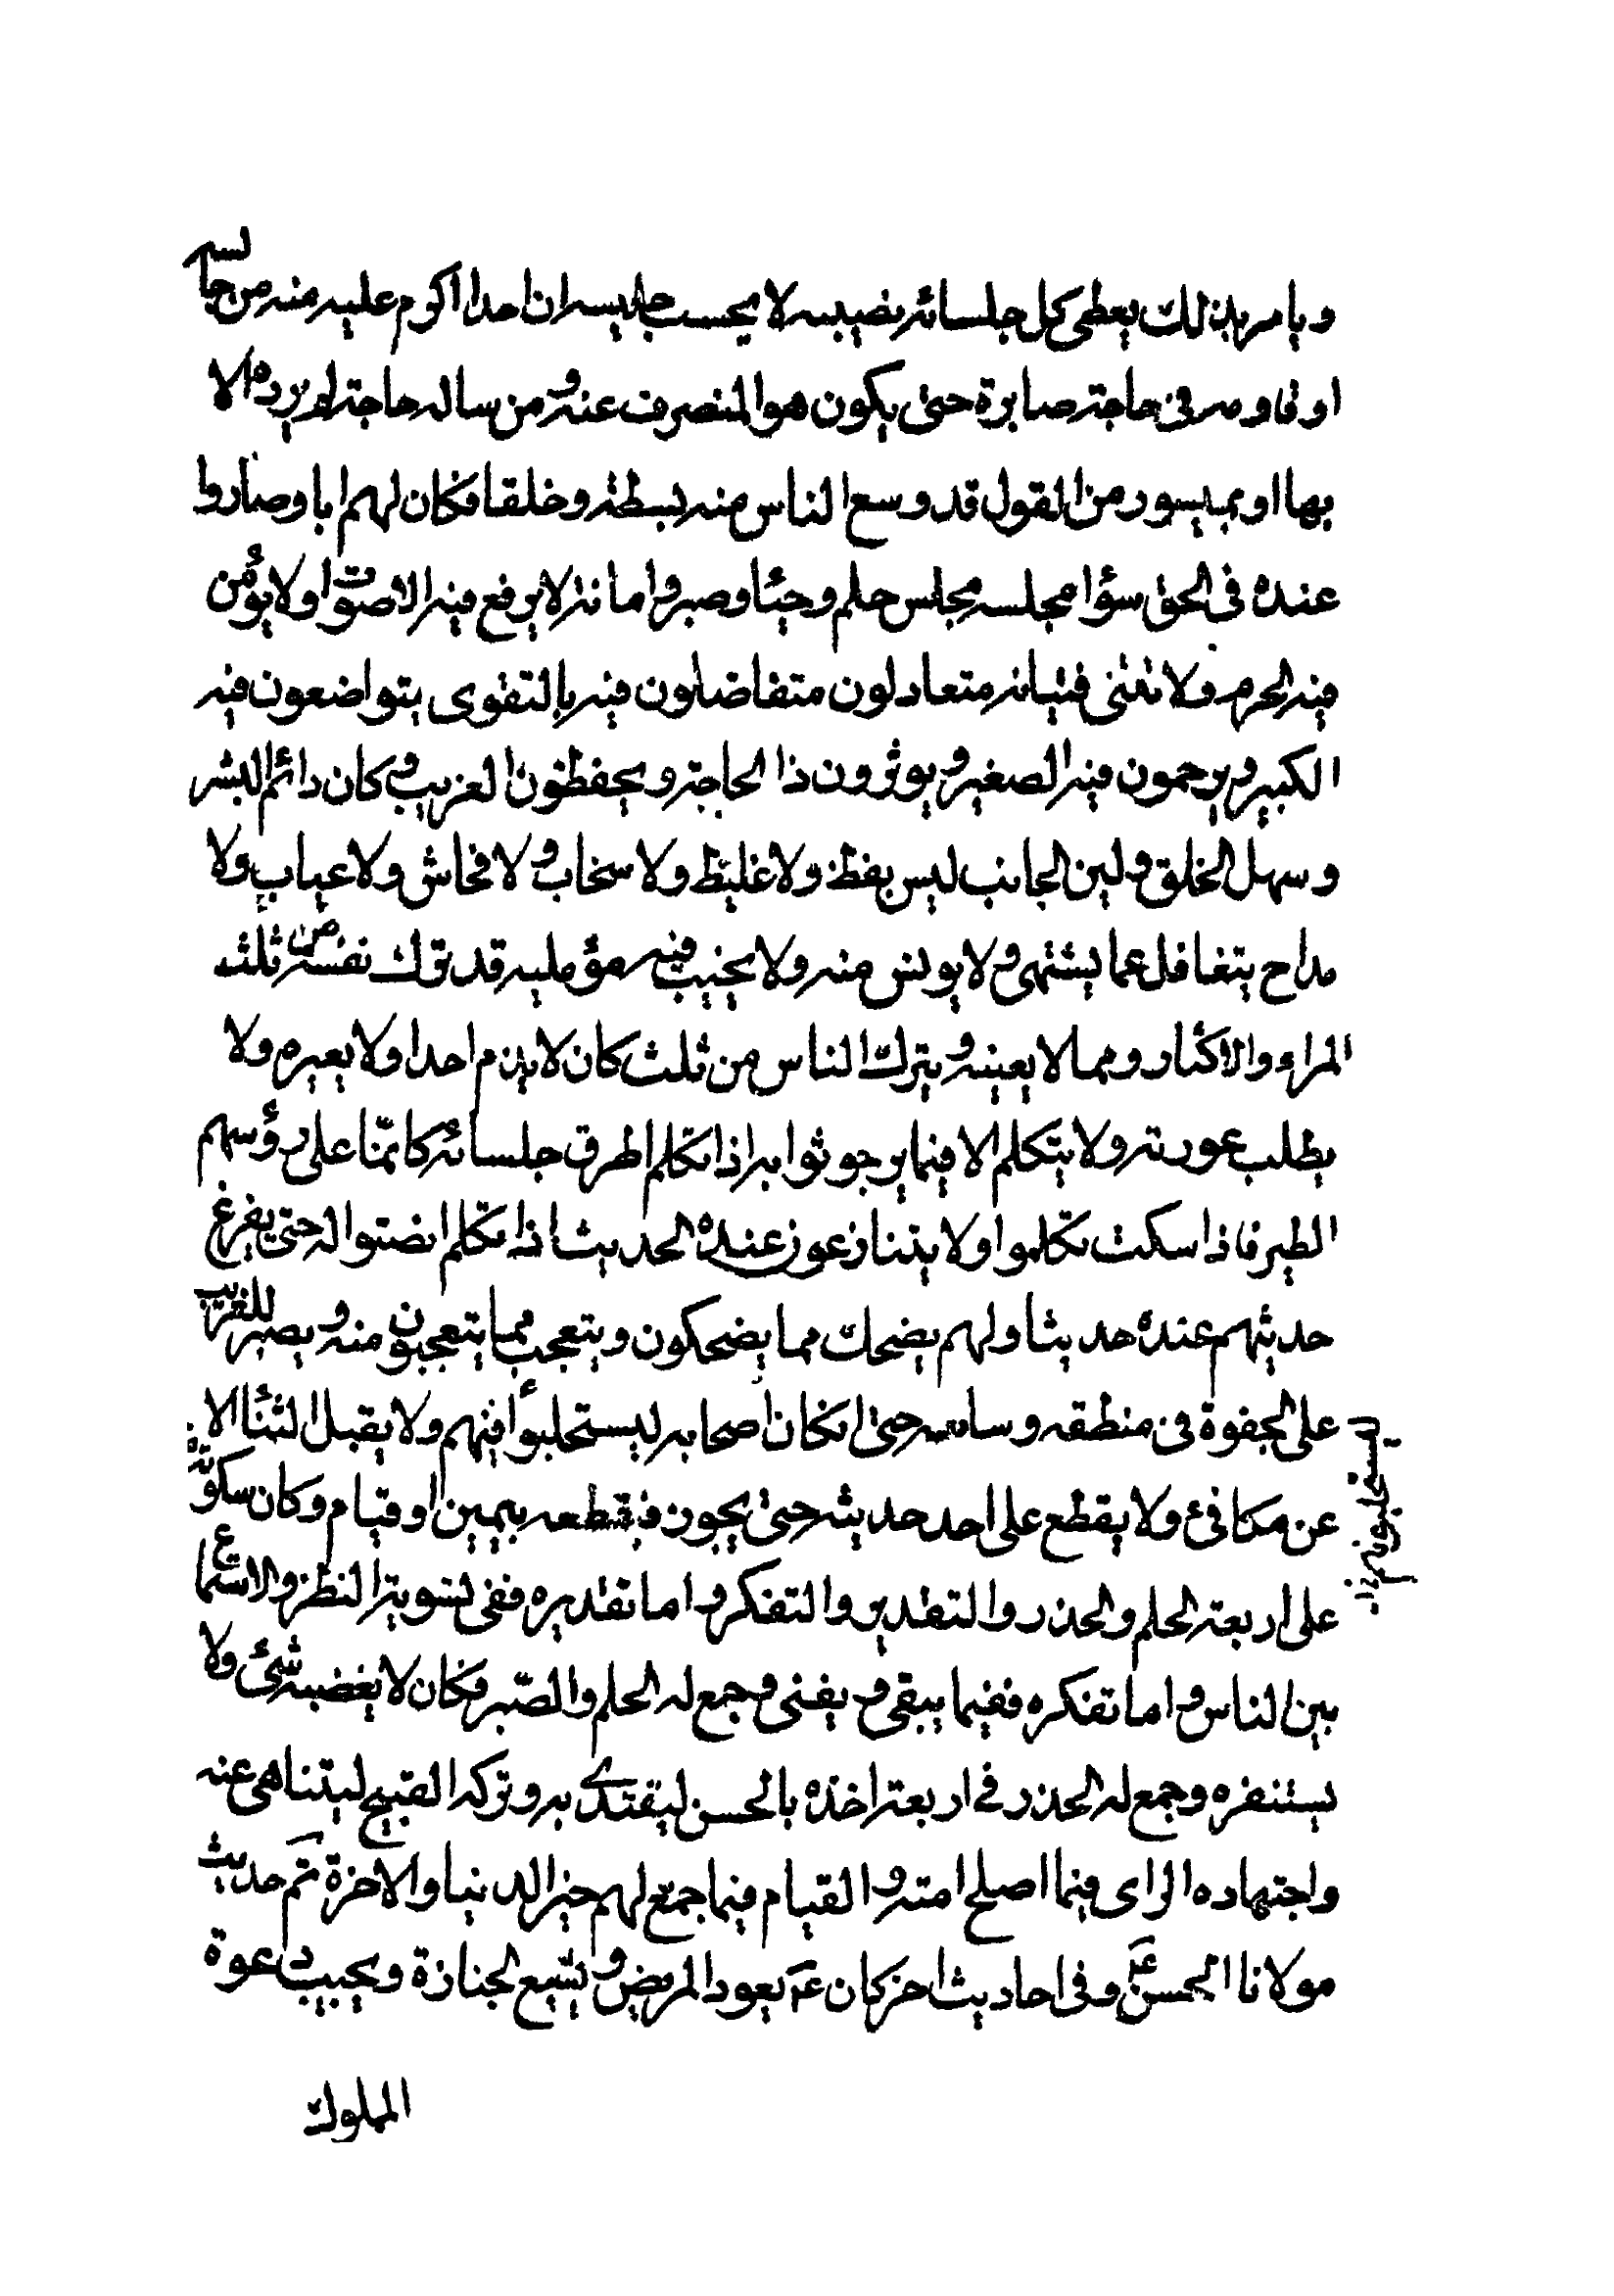 ويامر بذلك يعطى كل جلسائه نصيبه لا يحسب جليسه ان احدا اكرم عليه منه من جالسه
او قاومه في حاجة صابرة حتى يكون هو المنصرف عنه ومن ساله حاجة لم يرده الا
بها او بميسور من القول قد وسع الناس منه بسطة وخلقا فكان لهم ابا وصاروا
عنده في الحق سؤا مجلسه مجلس حلم وحئا وصبر وامانة لا يرفع فيه الاصوات ولا يؤمن
فيه الحرم ولا تنثى فتياته متعادلون متفاضلون فيه بالتقوى يتواضعون فيه
الكبير ويرحمون فيه الصغير ويوثرون ذا الحاجة ويحفظون الغريب وكان دائم البشر
وسهل الخلق ولين الجانب ليس بفظ ولا غليظ ولا سخاب ولا فحاش ولا عياب ولا
مداح يتغافل عما يشتهى ولا يويس منه ولا يخيب فيه مؤمليه قد ترك نفسه من ثلثه
المراء والاكثار ومما لا يعينه ويترك الناس من ثلث كان لا يذم احدا ولا يعيره ولا
يطلب عورته ولا يتكلم الا فيما يرجو ثوابه اذا تكلم اطرق جلسائه كانمّا على رؤسهم
الطير فاذا سكت تكلموا ولا يتنازعون عنده الحديث اذا تكلم انصتوا له حتى يفرغ
حديثهم عنده حديث اولهم يضحك مما يضحكون ويتعجب مما يتعجبون منه ويصبر للغريب
على الجفوة في منطقه وسالته حتى انكان اصحابه ليستحلبوا فيهم ولا يقبل الثنٔا الا
عن مكافئ ولا يقطع على احد حديثه حتى يجون فيقطعه بيمين او قيام وكان سكوته
على اربعة الحلم والحذر والتقدير والتفكر واما تقديره ففى تسوية النظر والاستماع
بين الناس واما تفكره ففيما يبقى ويفنى وجمع له الحلم والصّبر فكان لا يغضبه شئ ولا
يستنفره وجمع له الحذر فى اربعة اخذه بالحسن ليقتدى به وتركه القبيح ليتناهى عنه
واجتهاده الراى فيما اصلح امته والقيام فيما جمع لهم خير الدنيا والاخرة تم حديث
مولانا الحسن عم وفى احاديث اخر كان عم يعود المريض ويشيع الجنازة ويجيب دعوة
المملوك